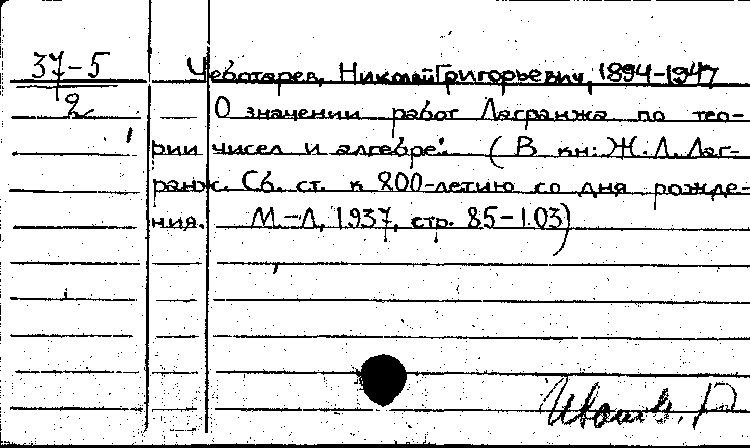 37-5
2
Чеботарев, Николай Григорьевич, 1894-1947
О значении работ Лагранжа по тео-
рии чисел и алгебре. (В кн: Ж. Л. Лаг-
ранж. Сб. ст. к 200-летию со дня рожде-
ния. М.-Л, 1937, стр. 85-103)